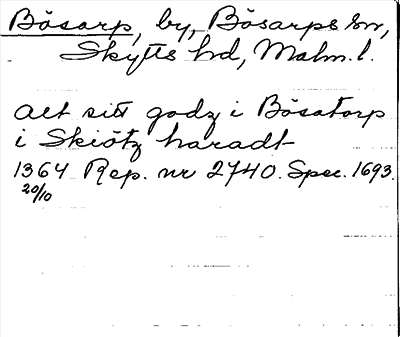 Bösarp, by, Bösarps sn,
Skytts hd, Malm. l.
alt sitt godz i Bösatorp
i Skiötz haradt
1364 Rep. nr 2740. Spec. 1693.
20/10